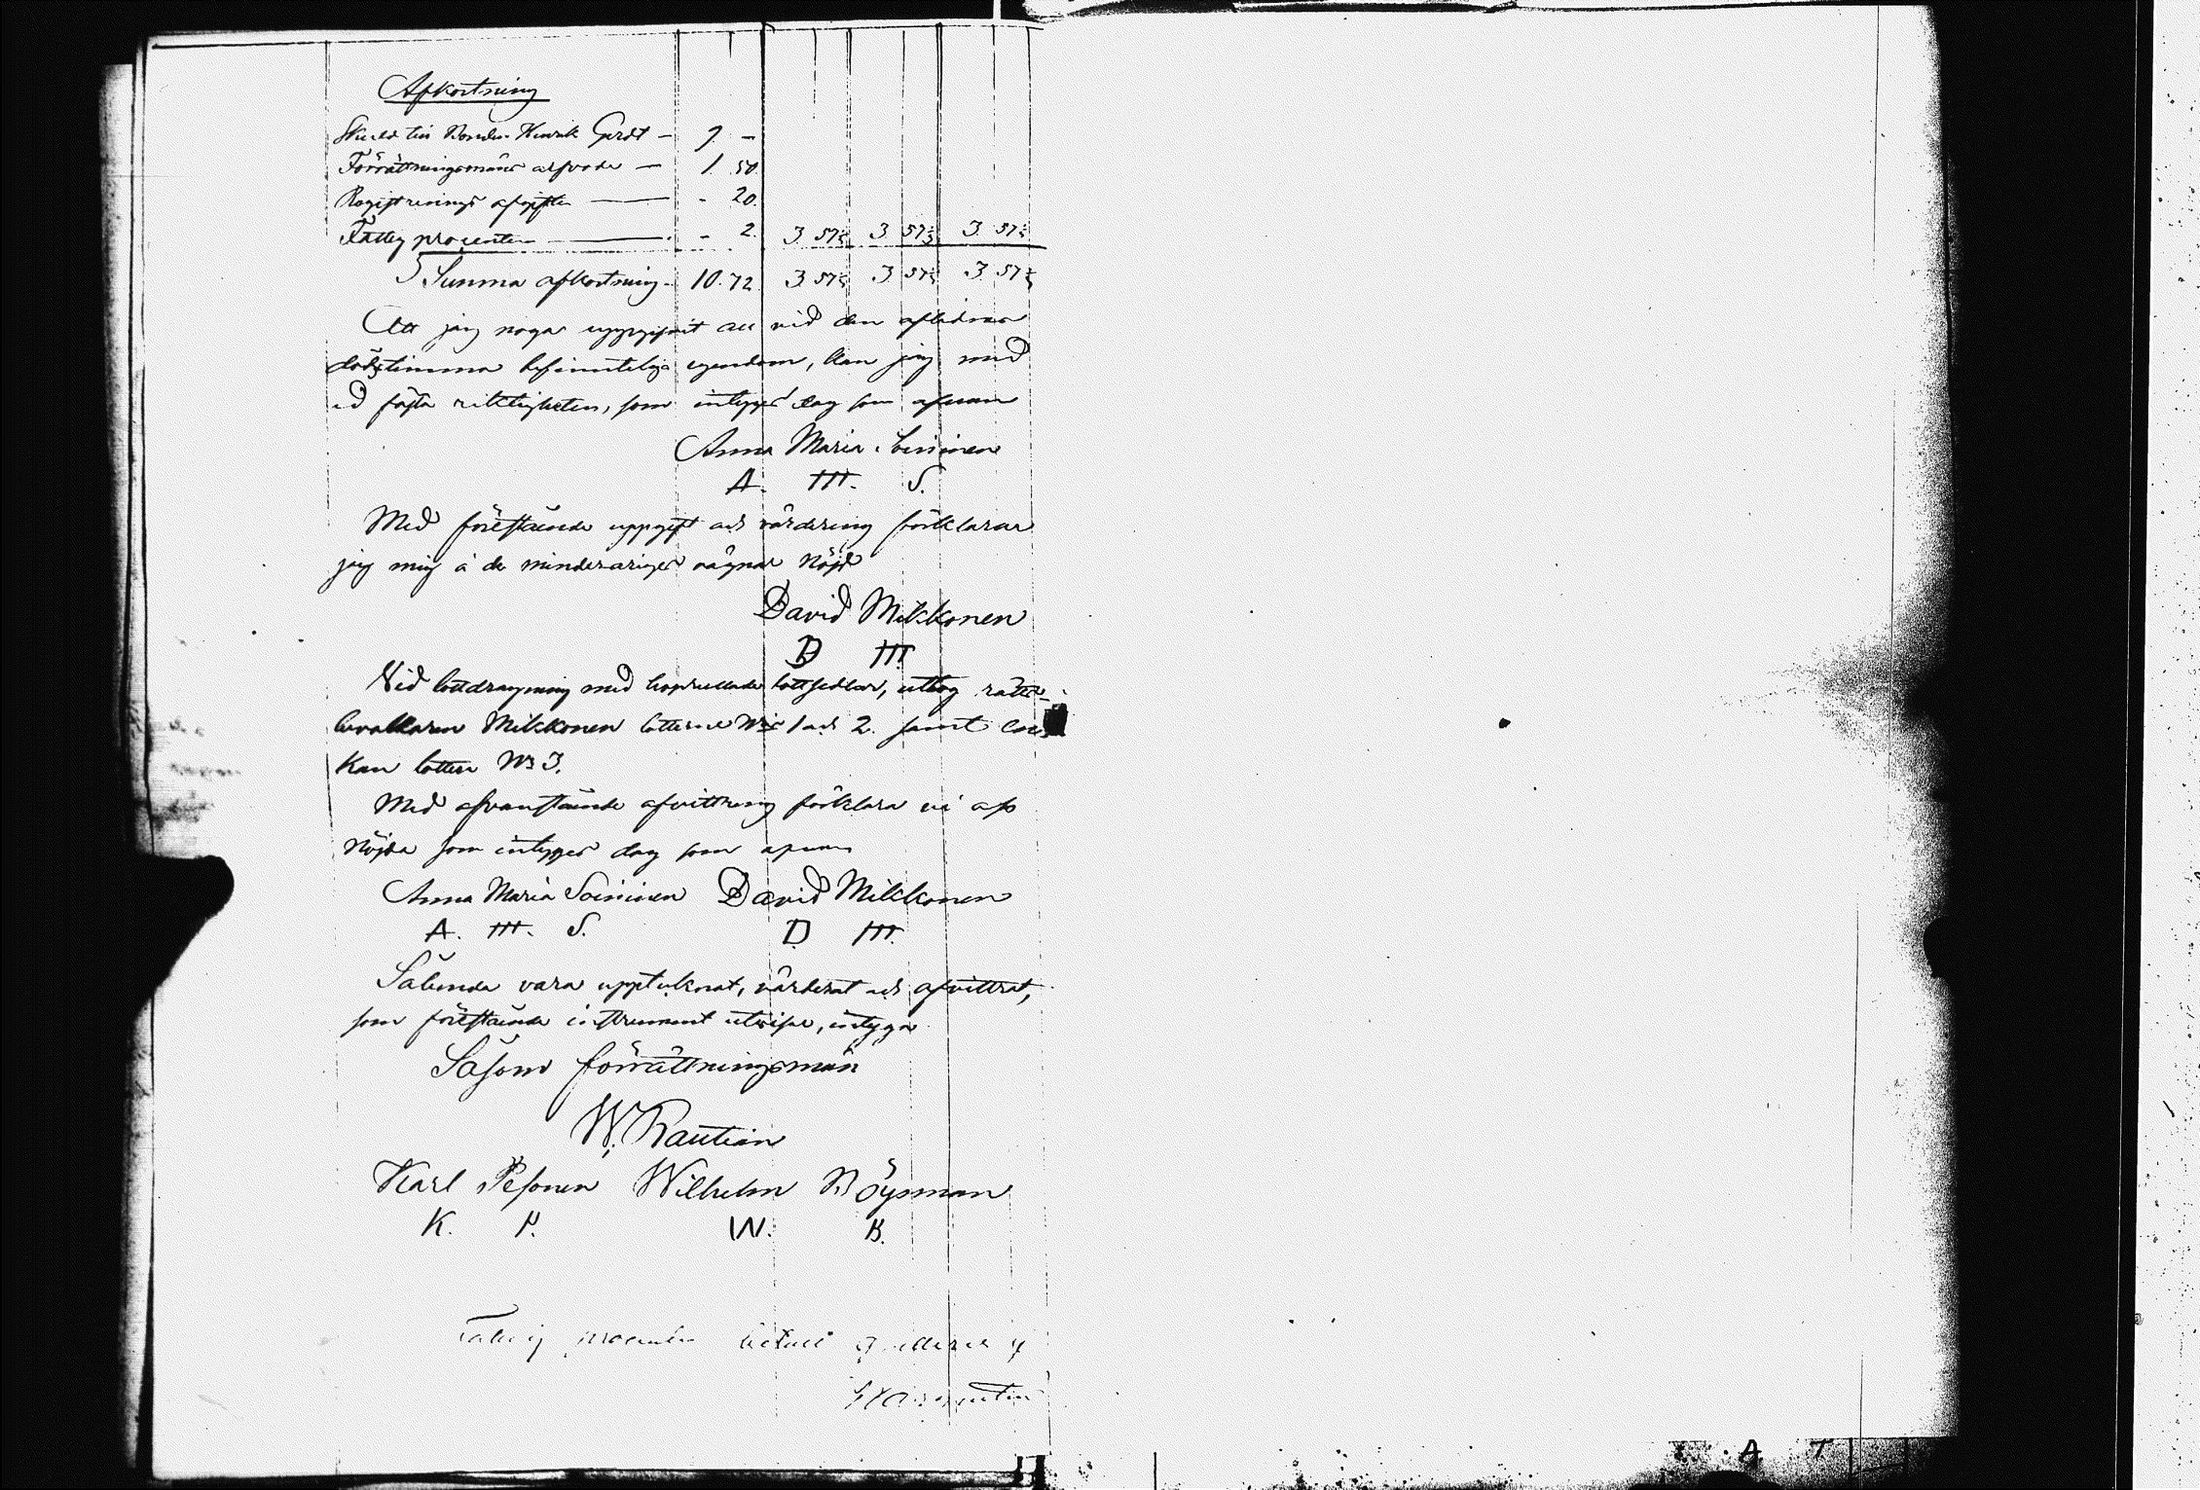 Afkortning
Skuld till Bonden Henrik Gerdt — 9. —
Förrättningsmäns arfvode — 1. 50.
Registrerings afgiften — - 20.
Fattig procenten — - 2. 3. 57⅓ 3. 57⅓ 3. 57⅓
Summa afkortning - 10. 72. 3. 57⅓ 3. 57⅓ 3. 57⅓
Att jag noga uppgifvit all vid den aflidnas
dödstimma befinnteliga egendom, kan jag med
ed fästa riktigheten, som intygas dag som ofvan
Anna Maria Soininen
A. M. S.
Med förestående uppgift och värdering förklarar
jag mig å de minderårigas vägnar nöjd
David Mikkonen
D M
Vid lottdragning med hoprullade lottsedlar, uttog rätte-
bevakaren Mikkonen lotterne Nris 1 och 2. samt en-
kan lotten No 3.
Med ofvanstående afvittring förklara vi oss
nöjda som intygas dag som ofvan
Anna Maria Soininen David Mikkonen
A. M. S. D M.
Sålunda vara upptecknat, värderat och afvittrat,
som förestående instrument utvisar, intyga
Såsom förrättningsmän
W. Rautiain
Karl Pesonen Wilhelm Böysman
K. P. W. B.
Fattig procenten betalt